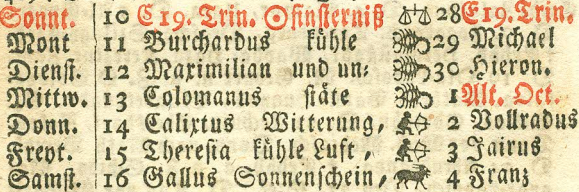 Sonnt. 10 E 19. Trin. ☉finsterniß ♎ 28 E 19. Trin.
Mont 11 Burchardus kühle ♏ 29 Michael
Dienst. 12 Maximilian und un⸗ ♏ 30 Hieron.
Mittw. 13 Colomanus stäte ♏ 1 Alt. Oct.
Donn. 14 Calixtus Witterung, ♐ 2 Vollradus
Freyt. 15 Theresia kühle Luft, ♐ 3 Jairus
Samst. 16 Gallus Sonnenschein, ♑ 4 Franz